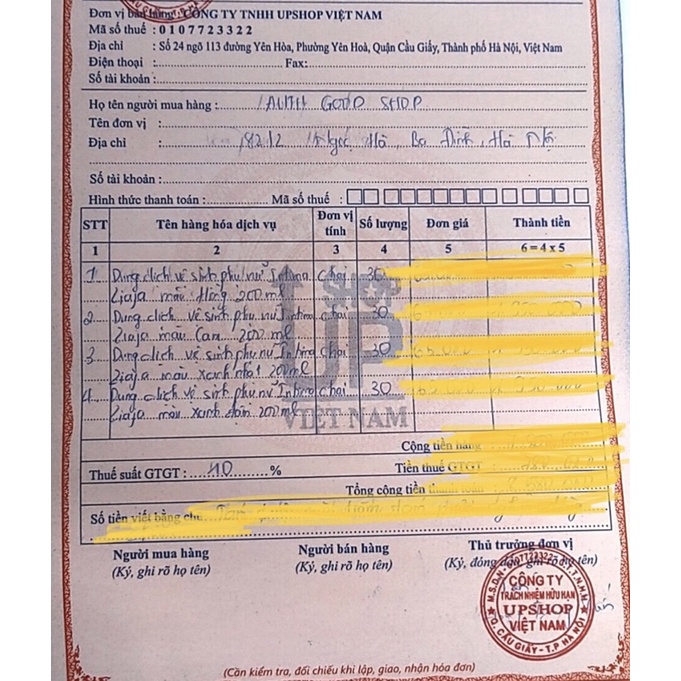 Đơn vị bán hàng: CÔNG TY TNHH UPSHOP VIỆT NAM
Mã số thuế : 0107723322
Địa chỉ : Số 24 ngõ 113 đường Yên Hòa, Phường Yên Hoà, Quận Cầu Giấy, Thành phố Hà Nội, Việt Nam
Điện thoại : Fax:
Số tài khoản:
Họ tên người mua hàng : AUTH GOOD SHOP
Tên đơn vị :
Địa chỉ Ngọc Hà, Ba Đình, Hà Nội
Số tài khoản :
Hình thức thanh toán : Mã số thuế :
STT Tên hàng hóa dịch vụ Đơn vị tính Số lượng Đơn giá Thành tiền
1 2 3 4 5 6 = 4 x 5
1 Dung dịch vệ sinh phụ nữ Intima chai 30
Ziaja màu Hồng 200ml
2 Dung dịch vệ sinh phụ nữ Intima chai 30
Ziaja màu Cam 200ml
3 Dung dịch vệ sinh phụ nữ Intima chai 30 65.000
Ziaja màu xanh nhạt 200ml
4 Dung dịch vệ sinh phụ nữ Intima chai 30
Ziaja màu xanh đậm 200ml
SHOP
UP
VIỆT NAM
Cộng tiền hàng
Thuế suất GTGT : 10 % Tiền thuế GTGT :
Tổng cộng tiền thanh toán
Số tiền viết bằng chữ
Người mua hàng Người bán hàng Thủ trưởng đơn vị
(Ký, ghi rõ họ tên) (Ký, ghi rõ họ tên) (Ký, đóng dấu, ghi rõ họ tên)
CÔNG TY
TRÁCH NHIỆM HỮU HẠN
UPSHOP
VIỆT NAM
Q. CẦU GIẤY - T.P HÀ NỘI
(Cần kiểm tra, đối chiếu khi lập, giao, nhận hóa đơn)